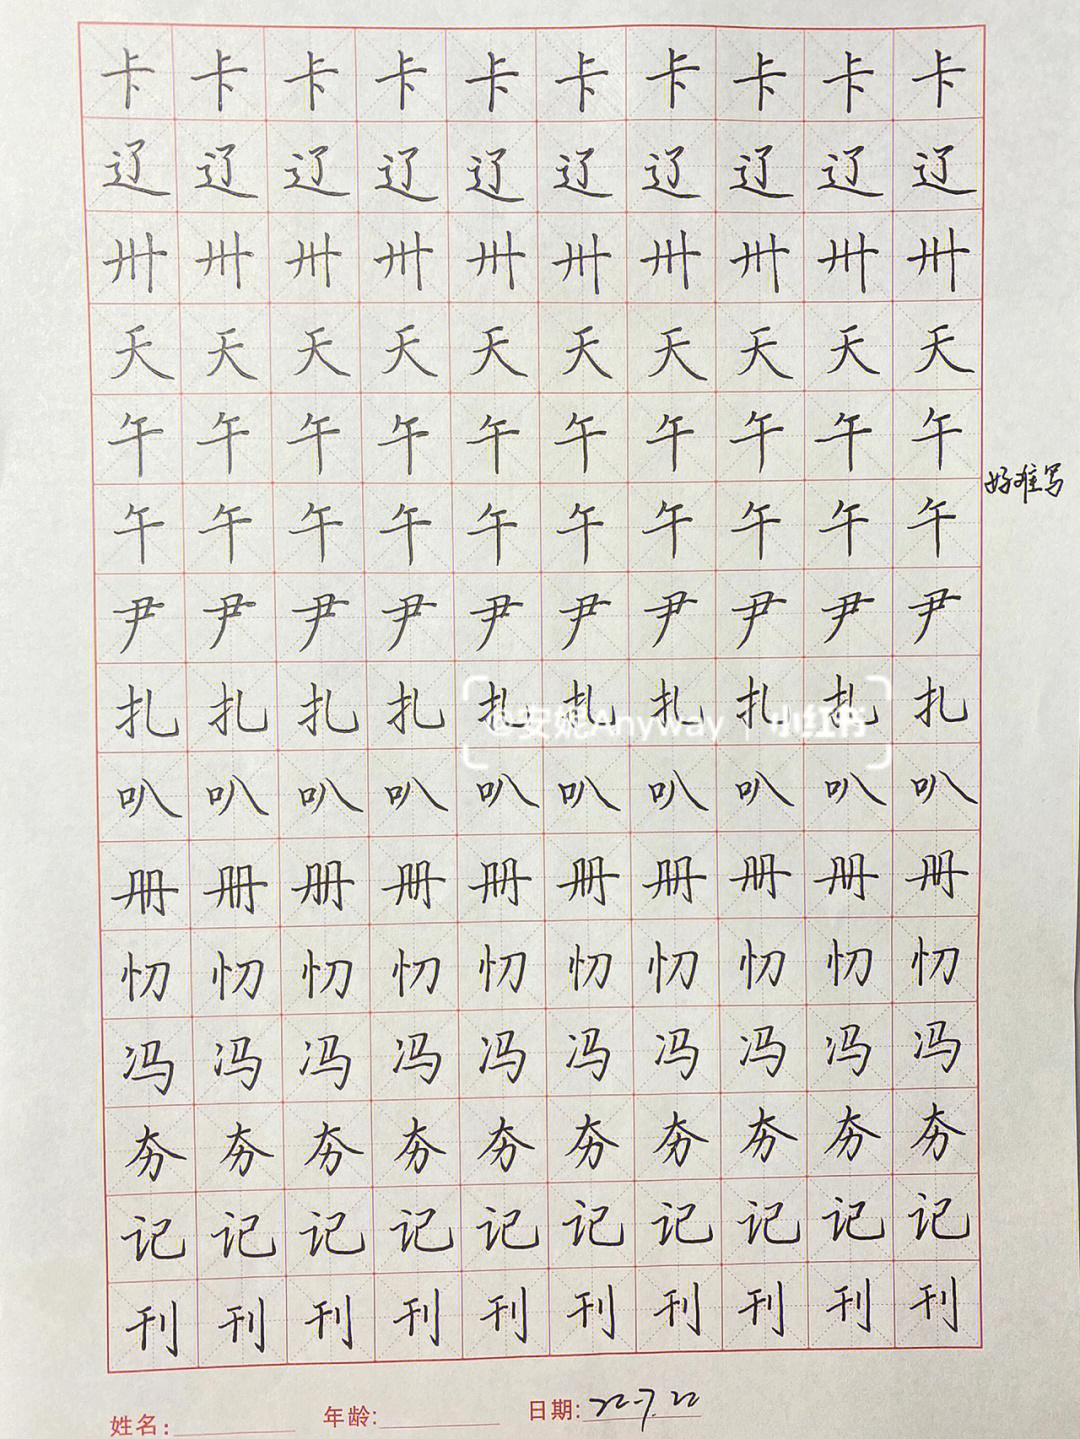 卡卡卡卡卡卡卡卡卡卡
辽辽辽辽辽辽辽辽辽辽
卅卅卅卅卅卅卅卅卅卅
天天天天天天天天天天
午午午午午午午午午午
好难写
午午午午午午午午午午
尹尹尹尹尹尹尹尹尹尹
扎扎扎扎扎扎扎扎扎扎
@安妮Anyway 小红书
叭叭叭叭叭叭叭叭叭叭
册册册册册册册册册册
忉忉忉忉忉忉忉忉忉忉
冯冯冯冯冯冯冯冯冯冯
夯夯夯夯夯夯夯夯夯夯
记记记记记记记记记记
刊刊刊刊刊刊刊刊刊刊
姓名: 年龄: 日期: 22.7.22